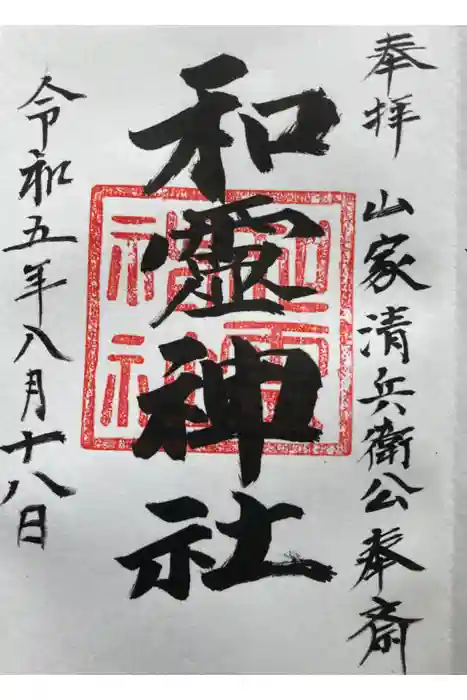 奉拝 山家清兵衛公奉斎
和霊神社
令和五年八月十八日
和霊
神社